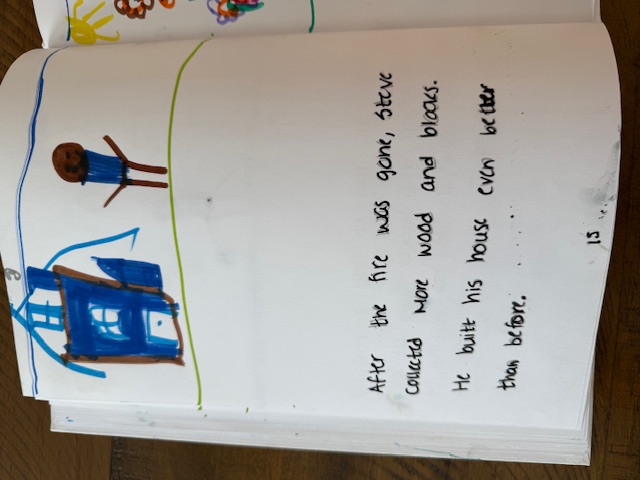 After the fire was gone, Steve
Collected More wood and blocks.
He built his house even better
than before. . . . .
15